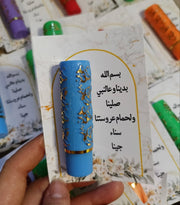 بسم الله
بدينا وعالنبي
صلينا
ولحمام عروستنا
سناء
جينا